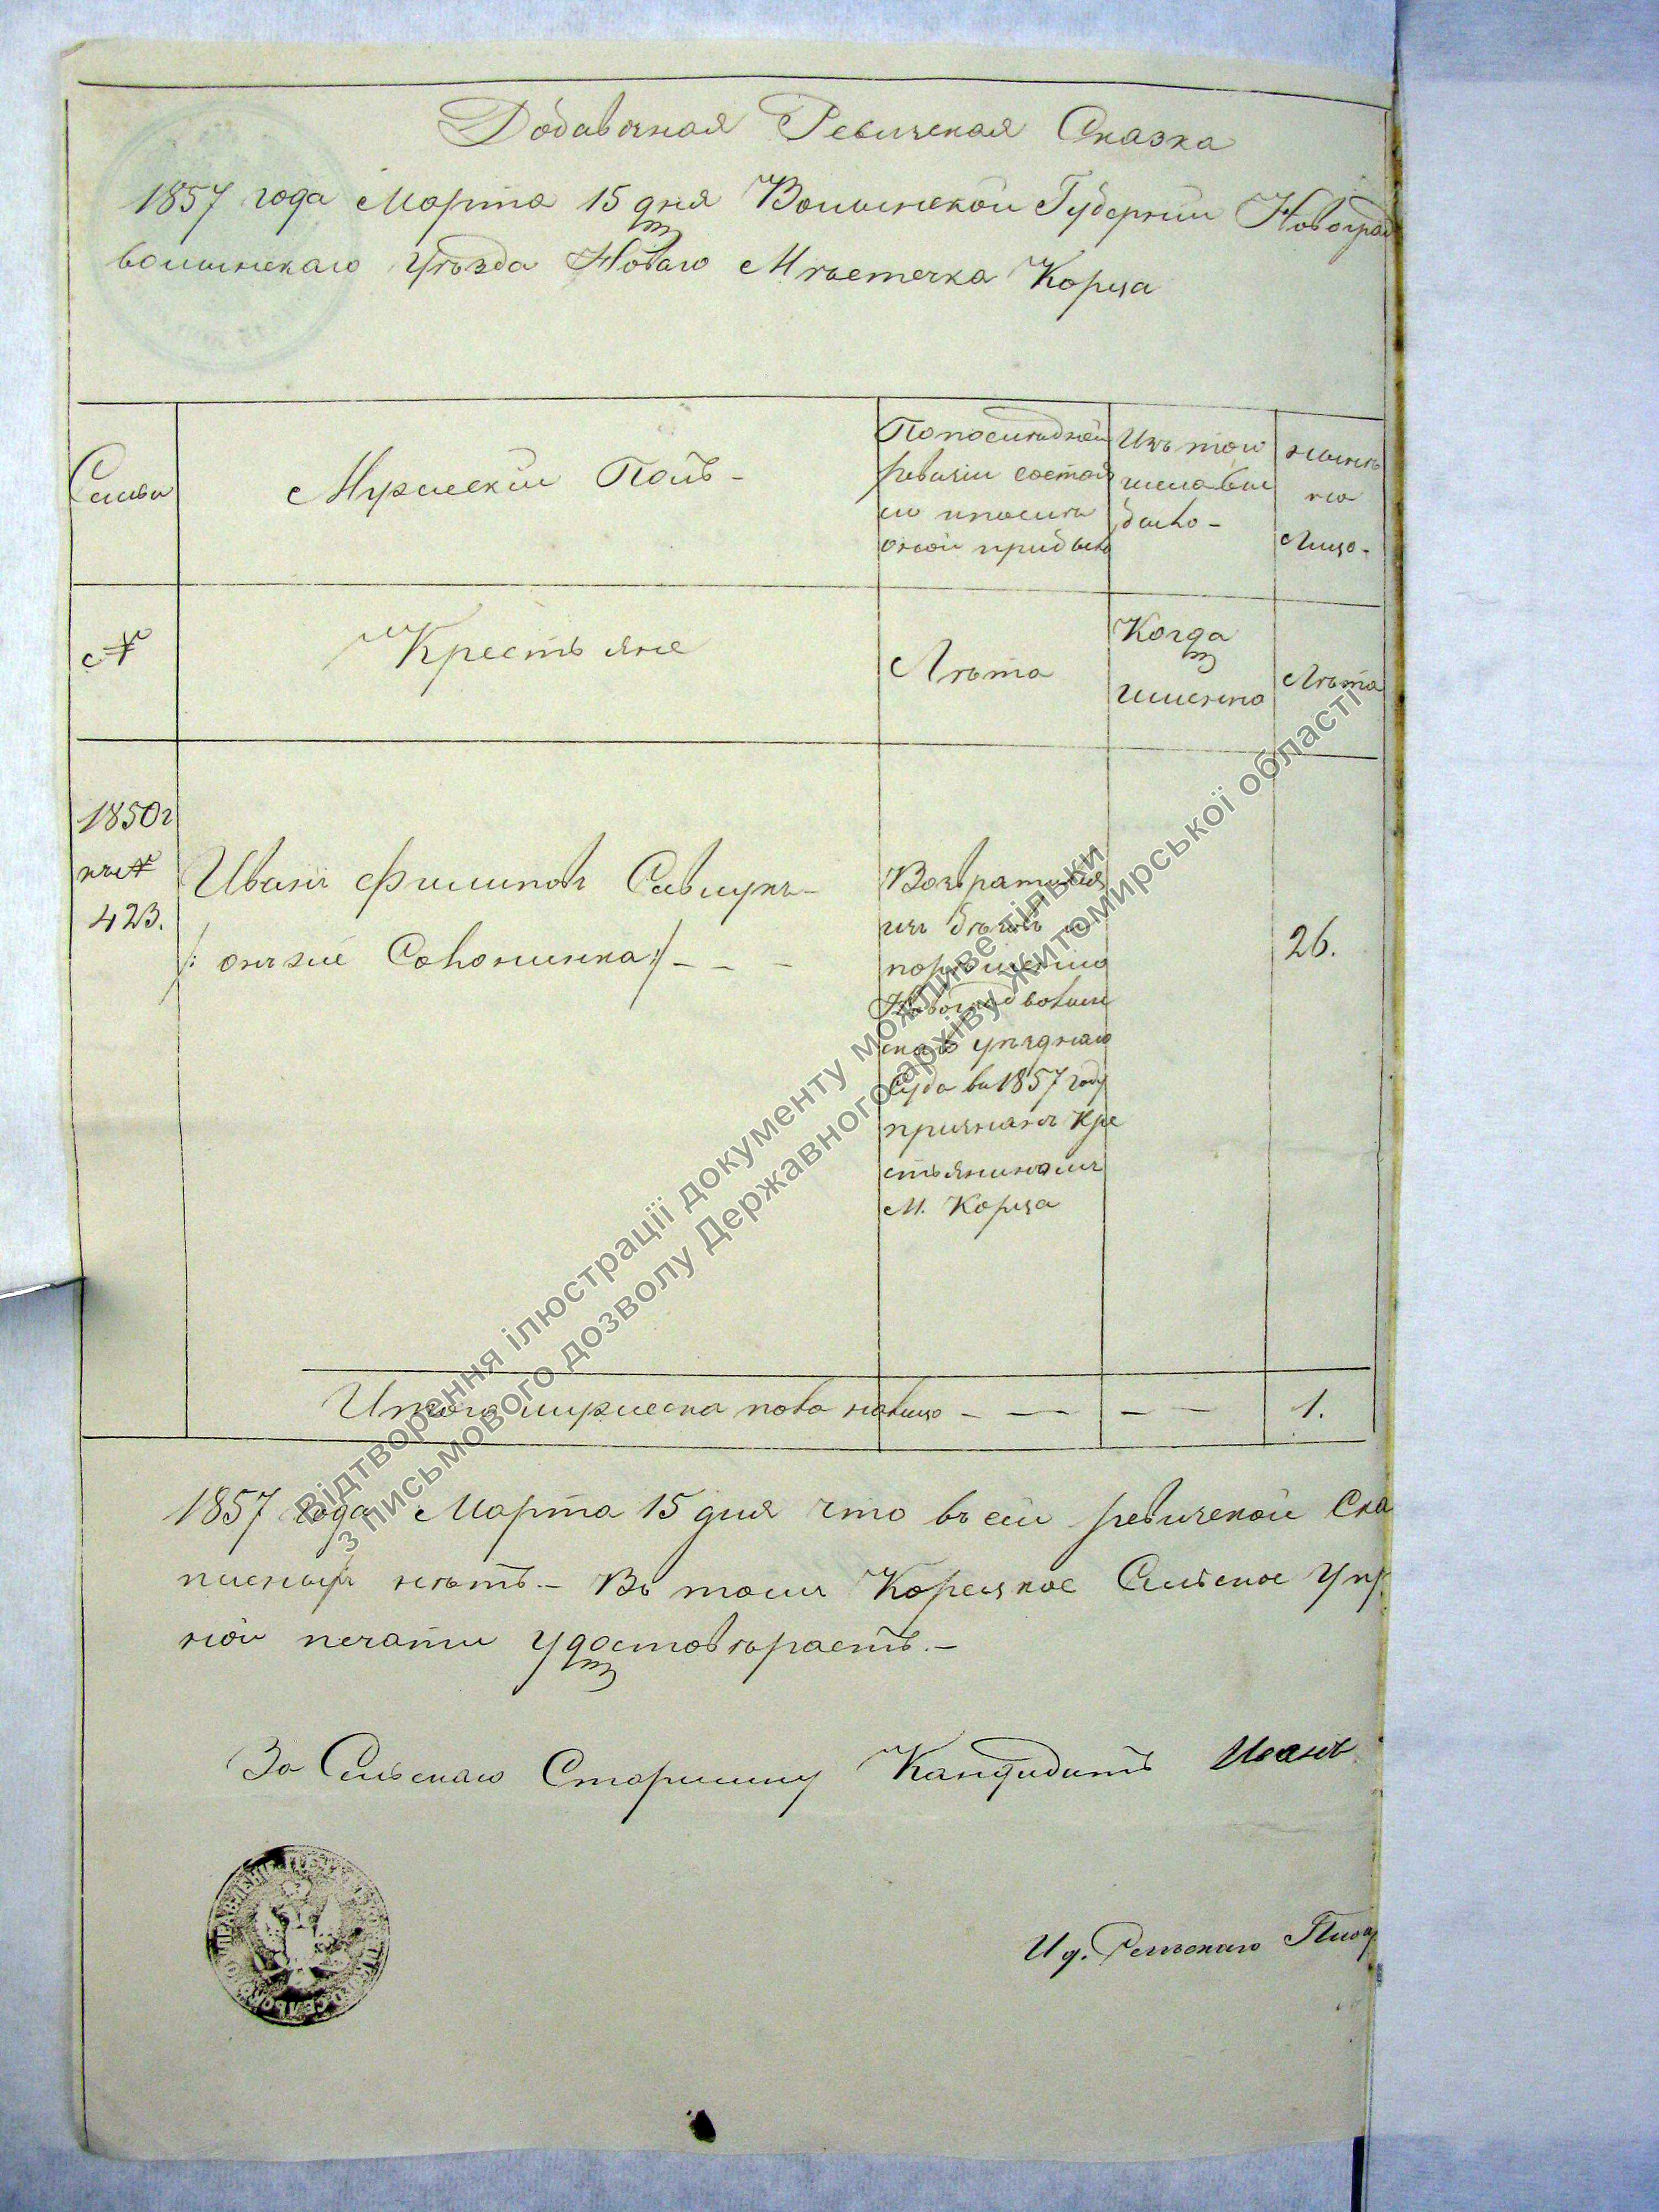 Добавочная Ревизская Сказка
1857 года Марта 15 дня Волынской Губернии Новоград
волынскаго Уѣзда Новаго Мѣстечка Корца
Семьи
Мужескій Полъ -
По последней
ревизіи состоя
ло и после
оной прибыло
Изъ того
числа вы
было -
нынѣ
на
лицо -
№
Крестьяне
Лѣта
Когда
именно
Лѣта
1850 г
№
423.
Иванъ Филиповъ Савчукъ -
/: онъ же :/ - - -
Возвратился
изъ бѣговъ и
по решению
Новоградволын
скаго уѣзднаго
Суда въ 1857 году
признанъ Кре
стьяниномъ
М. Корца
26.
Итого мужеска пола на лицо - - - - - 1.
1857 года Марта 15 дня что въ сей ревизской Ска
писныхъ нѣтъ. - Въ томъ Корецкое Сельское Упр
ной печати удостовѣряетъ. -
За Сельскаго Старшину Кандидатъ Иванъ
И д. Сельскаго Писар
Відтворення ілюстрації документу можливе тільки
з письмового дозволу Державного архіву Житомирської області